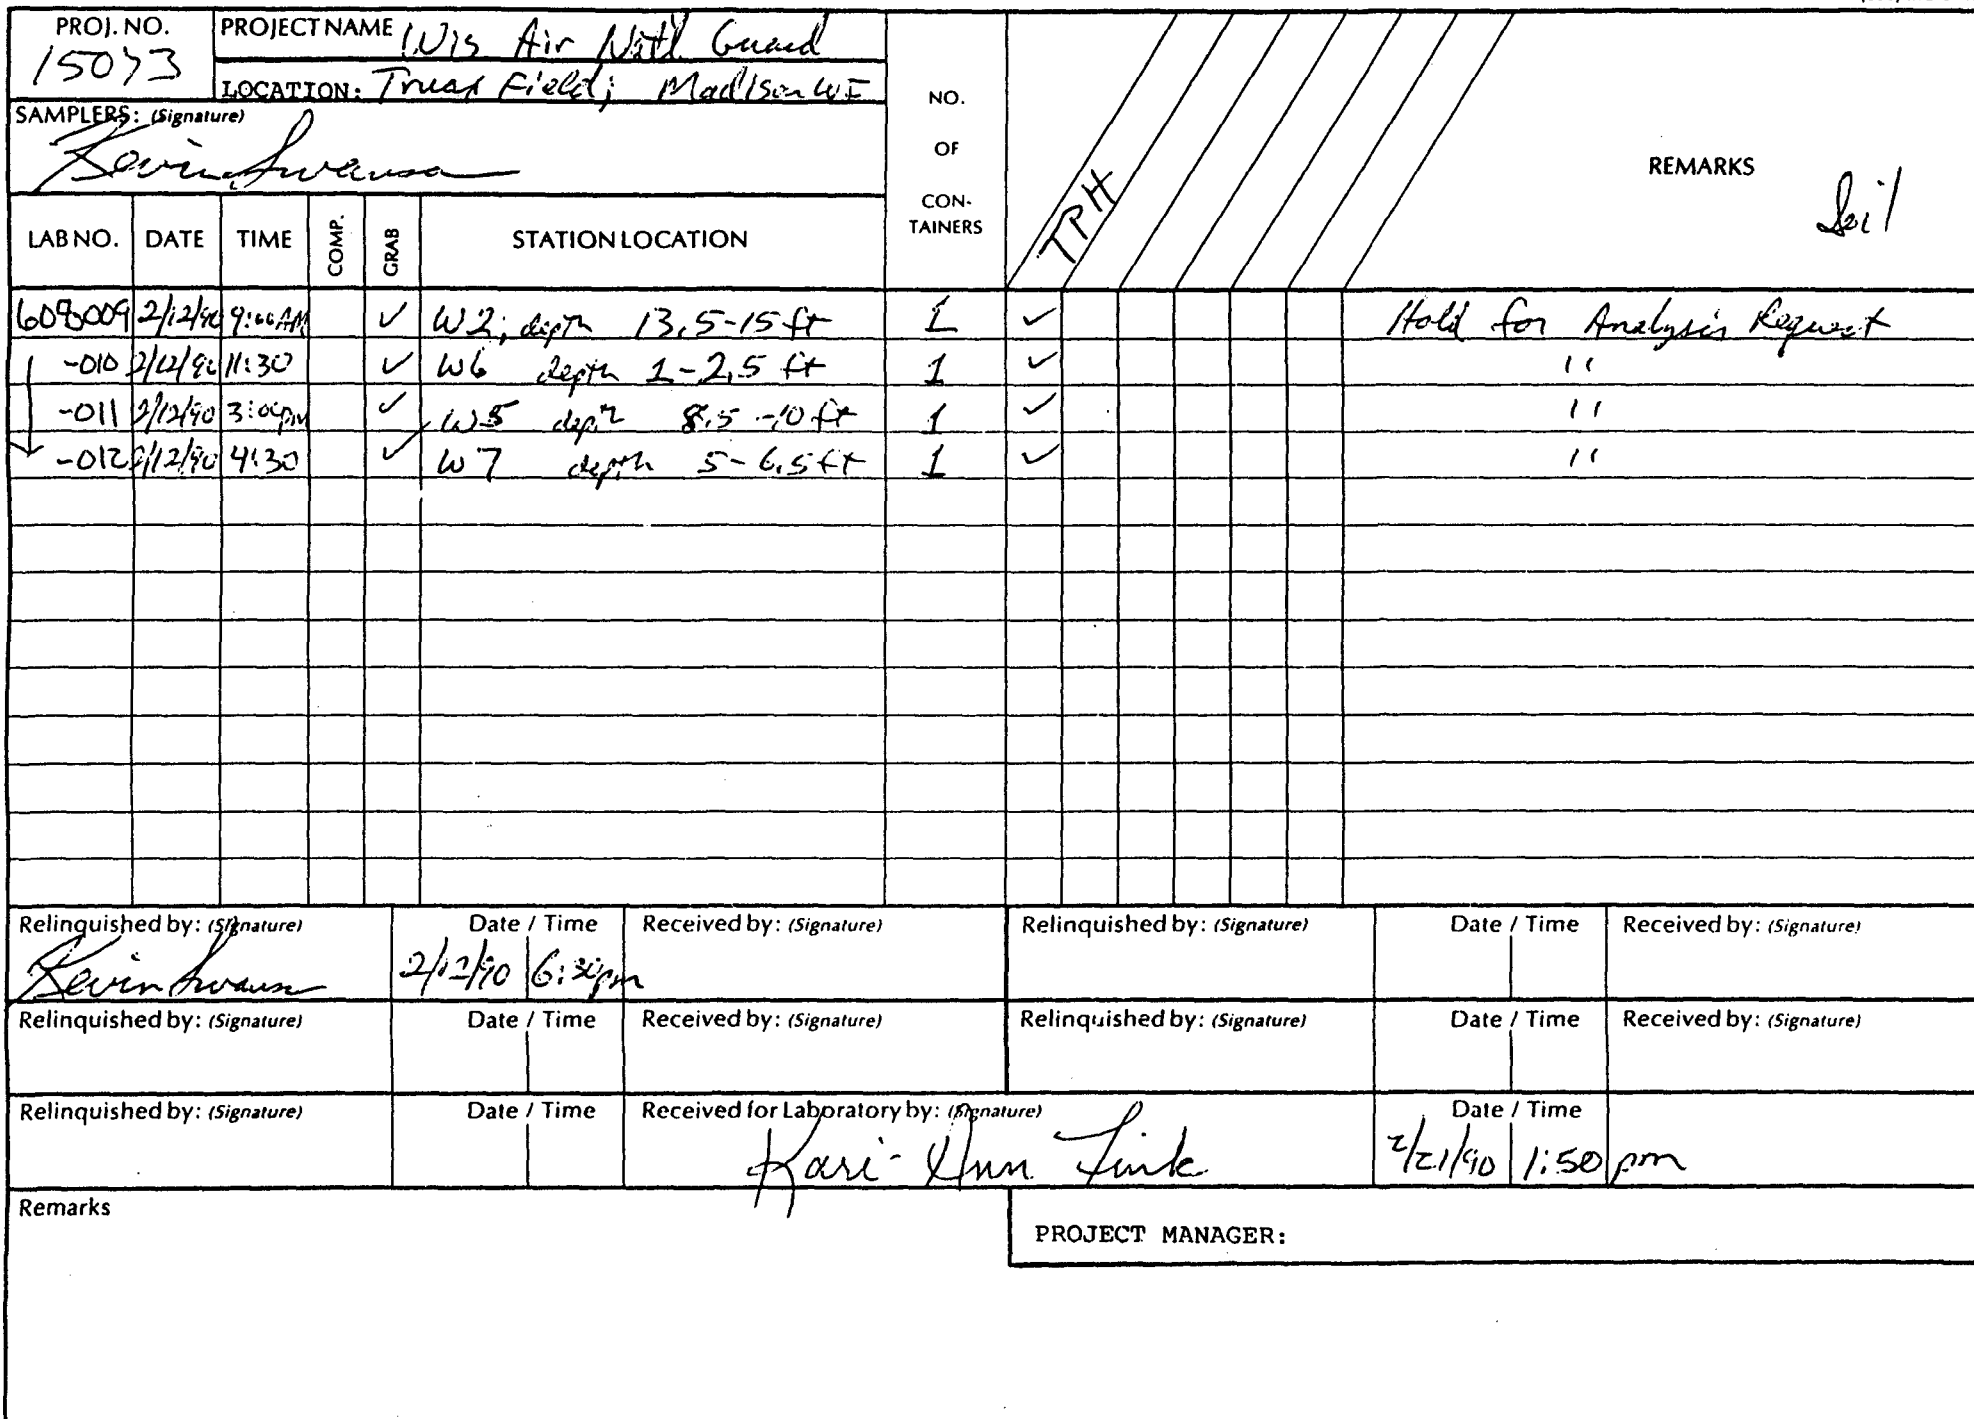 PROJ. NO. PROJECT NAME Wis Air Natl Guard
15073
LOCATION: Truax Field; Madison WI
SAMPLERS: (Signature)
Kevin Swanson
NO.
OF
CON-
TAINERS
TPH
REMARKS
Soil
LAB NO. DATE TIME COMP. GRAB STATION LOCATION
608009 2/12/90 9:00AM ✓ W2; depth 13.5-15 ft 1 ✓ Hold for Analysis Request
-010 2/12/90 11:30 ✓ W6 depth 1-2.5 ft 1 ✓ "
-011 2/12/90 3:00pm ✓ W5 depth 8.5-10 ft 1 ✓ "
-012 2/12/90 4:30 ✓ W7 depth 5-6.5 ft 1 ✓ "
Relinquished by: (Signature) Date / Time Received by: (Signature) Relinquished by: (Signature) Date / Time Received by: (Signature)
Kevin Swanson 2/12/90 6:30pm
Relinquished by: (Signature) Date / Time Received by: (Signature) Relinquished by: (Signature) Date / Time Received by: (Signature)
Relinquished by: (Signature) Date / Time Received for Laboratory by: (Signature) Date / Time
Kari-Ann Fink 2/21/90 1:50 pm
Remarks
PROJECT MANAGER: